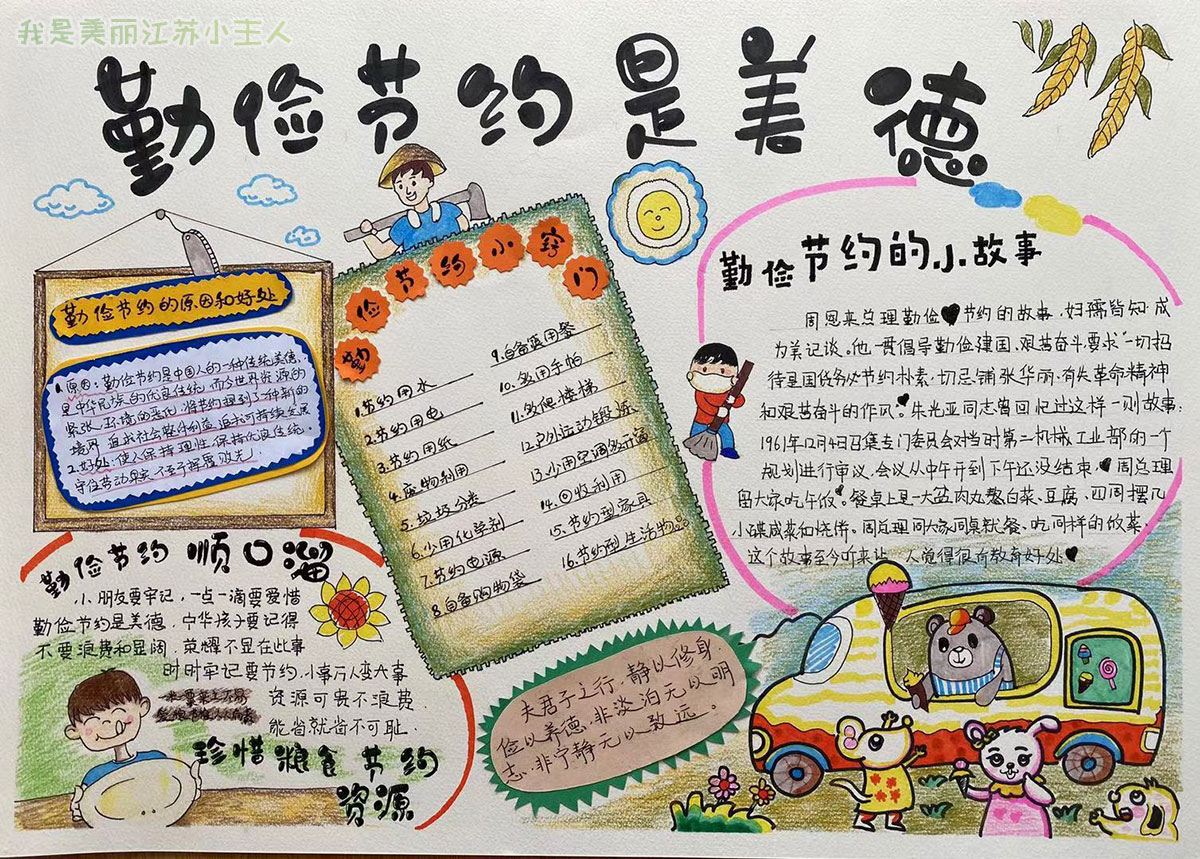 我是美丽江苏小主人
勤俭节约是美德
勤俭节约的原因和好处
1.原因:勤俭节约是中国人的一种传统美德,
是中华民族的优良传统,而今世界资源的
紧张、环境的恶化,将节约提到了一种新的
境界,
2.好处:使人保持理性,保持优良传统。
守住劳动果实,不至于挥霍败光。
勤俭节约小窍门
1.节约用水
2.节约用电
3.节约用纸
4.废物利用
5.垃圾分类
6.少用化学剂
7.节约电源
8.自备购物袋
9.自备篮用餐
10.多用手帕
11.多爬楼梯
12户外运动锻炼
13.少用空调多开窗
14.回收利用
15.节约型家具
16.节约型生活物。
勤俭节约的小故事
周恩来总理勤俭节约的故事,妇孺皆知,成
为美记谈。他一贯倡导勤俭建国、艰苦奋斗要求“一切招
待是国务必节约朴素,切忌铺张华丽,有失革命精神
和艰苦奋斗的作风”。朱光亚同志曾回忆过这样一则故事:
1961年12月4日召集专门委员会对当时第二机械工业部的一个
规划进行审议,会议从中午开到下午还没结束,周总理
留大家吃午饭。餐桌上是一大盆肉丸熬白菜、豆腐,四周摆几
小碟咸菜和烧饼。周总理同大家同桌就餐、吃同样的饭菜,
这个故事至今听来让人觉得很有教育好处
勤俭节约顺口溜
小朋友要牢记,一点一滴要爱惜
勤俭节约是美德,中华孩子要记得
不要浪费和显阔,荣耀不显在此事
时时牢记要节约,小事万人变大事
资源可贵不浪费,
能省就省不可耻.
珍惜粮食节约
资源
夫君子之行,静以修身,
俭以美德,非淡泊无以明
志,非宁静无以致远。